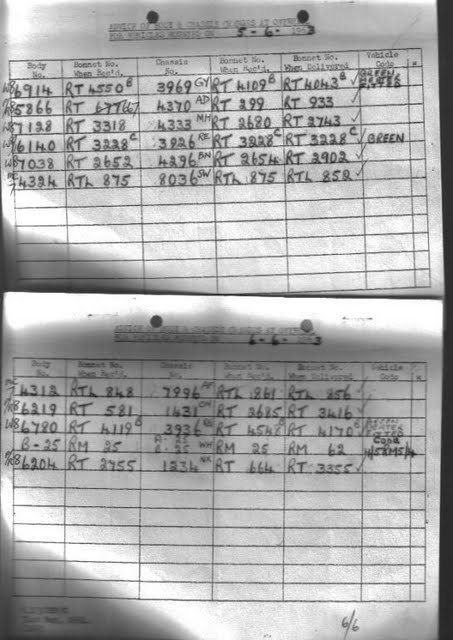 ADVICE OF BODY & CHASSIS CHANGES AT OVER
FOR VEHICLES MOUNTED ON 5-6-1963
Body No. Bonnet No. When Rec'd. Chassis No. Bonnet No. When Rec'd. Bonnet No. When Delivered Vehicle Code *
W8 6914 RT 4550 B 3969 GY RT 4109 B RT 4043 B ✓ GREEN
5866 RT 4370 AD RT 299 RT 933 ✓
W8 7128 RT 3318 4333 MH RT 2680 RT 2743 ✓
W8 6140 RT 3228 C 3926 RE RT 3228 C RT 3228 C ✓ GREEN
W8 7038 RT 2652 4296 BN RT 2654 RT 2902 ✓
4324 RTL 875 8036 SW RTL 875 RTL 852 ✓
ADVICE OF BODY & CHASSIS CHANGES AT OVER
FOR VEHICLES MOUNTED ON 6-6-1963
Body No. Bonnet No. When Rec'd. Chassis No. Bonnet No. When Rec'd. Bonnet No. When Delivered Vehicle Code *
4312 RTL 848 7996 RTL 861 RTL 856 ✓
6219 RT 581 1431 RT 2685 RT 3416 ✓
W8 6780 RT 4119 B 3936 RT 4548 RT 4170 B
B-25 RM 25 A-25 B-25 WH RM 25 RM 62 CODE 4/5RM5/4
6204 RT 2755 1234 NX RT 664 RT 3355 ✓
6/6